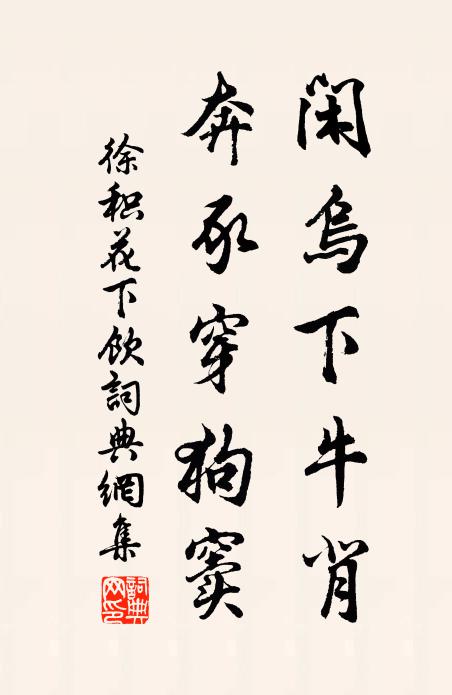 閑烏下牛背
奔豕穿狗窦
徐积花下飲詞典網集
詞典
网印